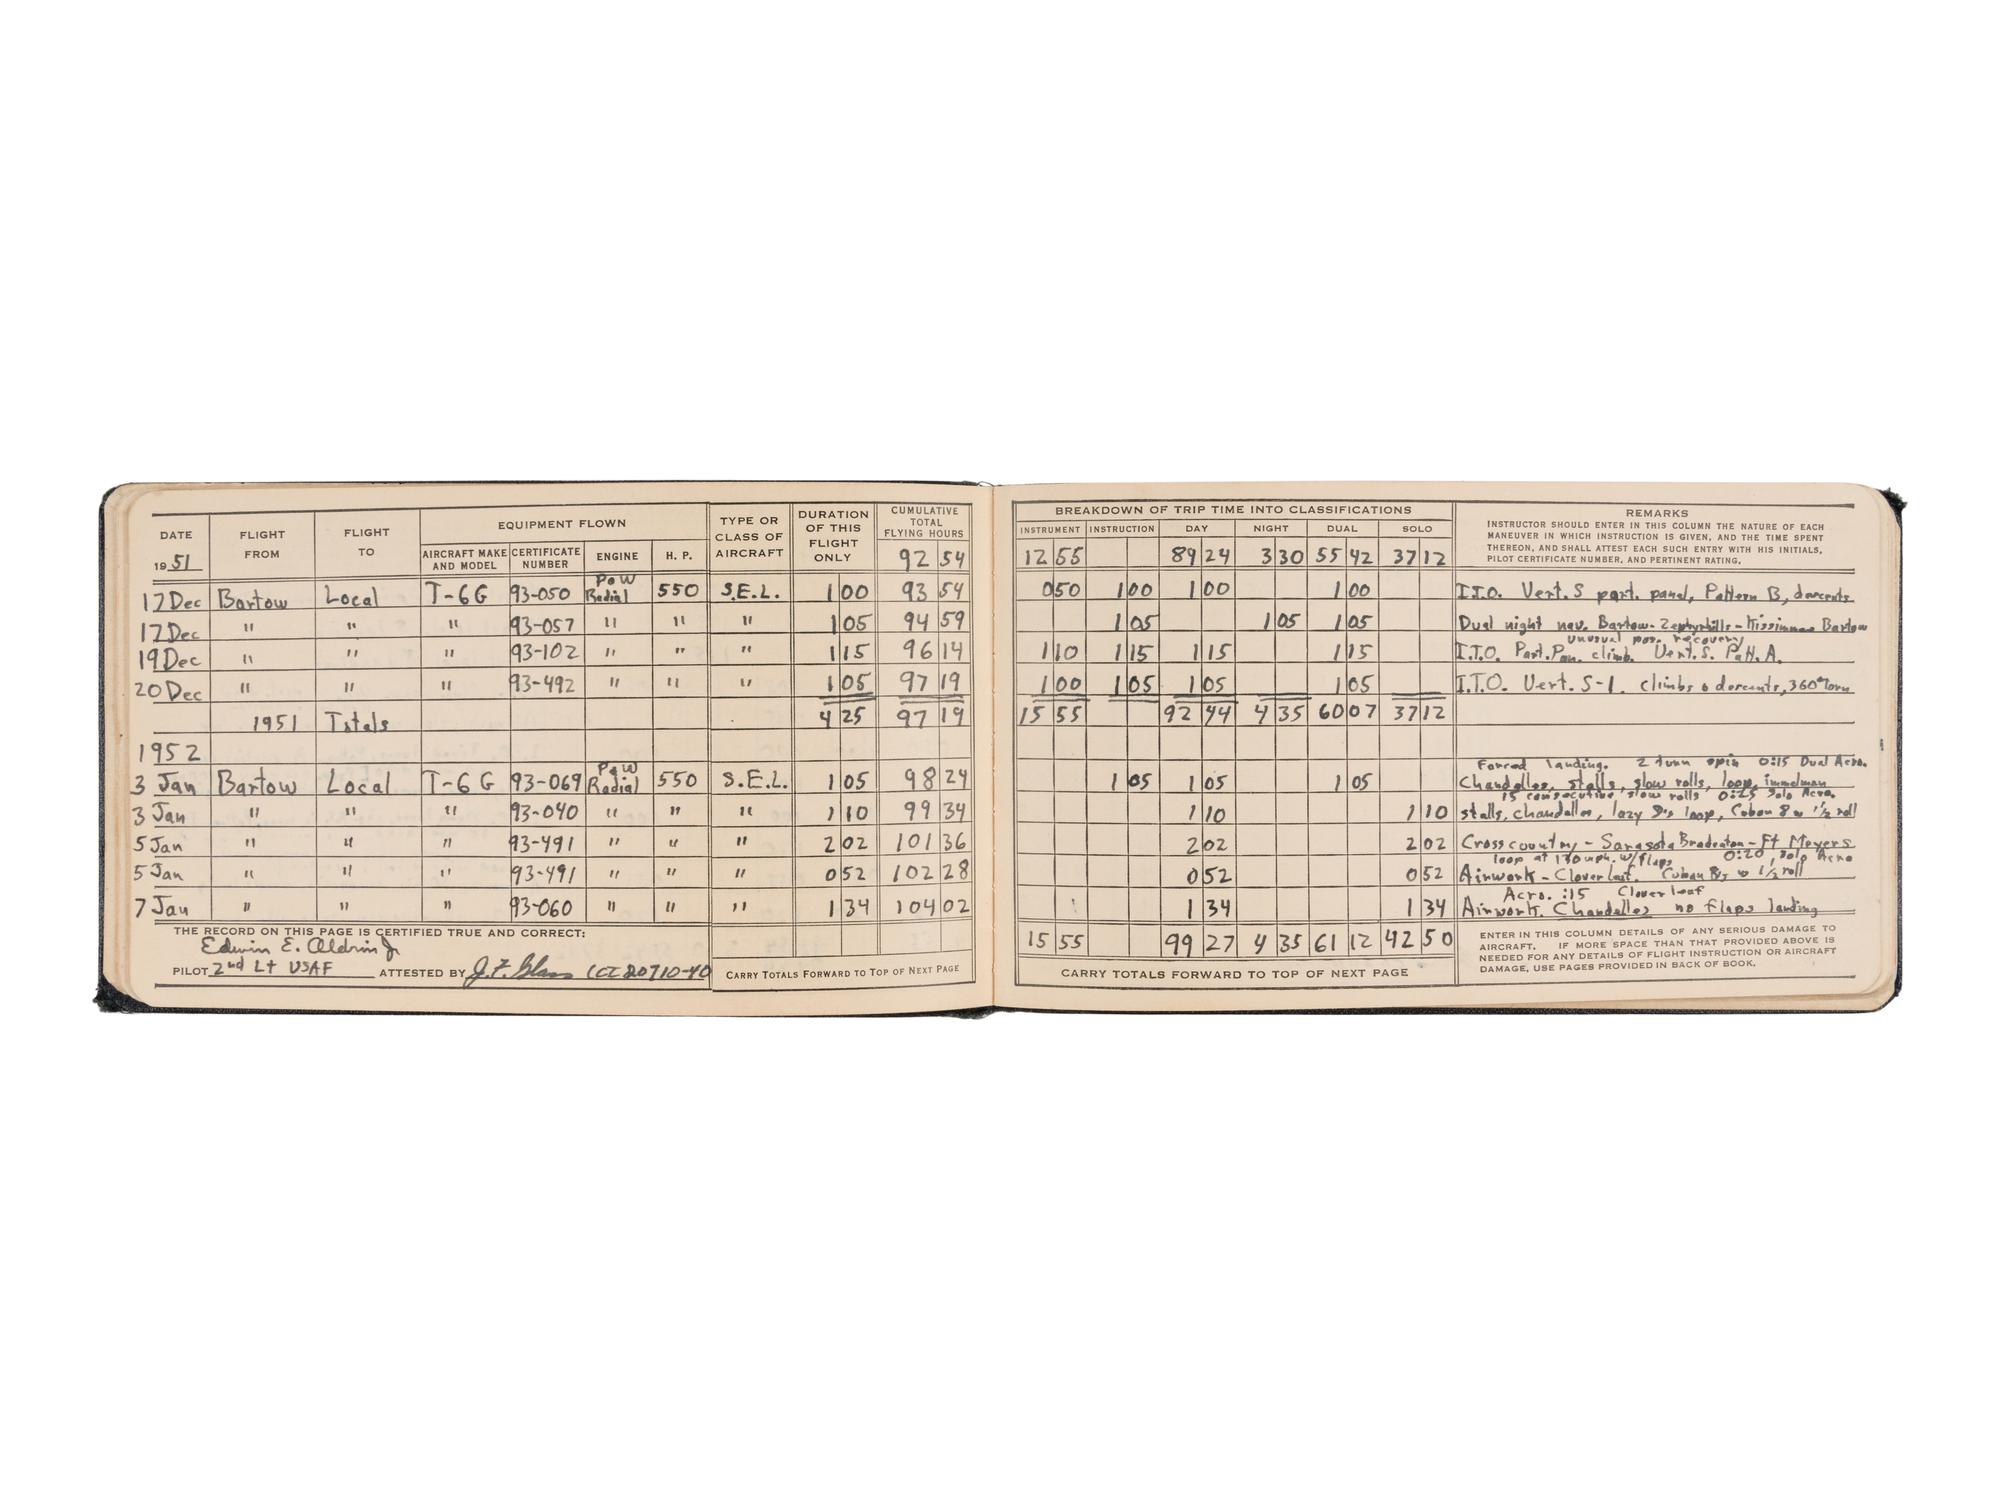 DATE FLIGHT FROM FLIGHT TO EQUIPMENT FLOWN TYPE OR CLASS OF AIRCRAFT DURATION OF THIS FLIGHT ONLY CUMULATIVE TOTAL FLYING HOURS
1951 AIRCRAFT MAKE AND MODEL CERTIFICATE NUMBER ENGINE H. P. 92 54
17 Dec Bartow Local T-6G 93-050 P&W Radial 550 S.E.L. 1 00 93 54
17 Dec " " " 93-057 " " " 1 05 94 59
19 Dec " " " 93-102 " " " 1 15 96 14
20 Dec " " " 93-492 " " " 1 05 97 19
1951 Totals 4 25 97 19
1952
3 Jan Bartow Local T-6G 93-069 P&W Radial 550 S.E.L. 1 05 98 24
3 Jan " " " 93-040 " " " 1 10 99 34
5 Jan " " " 93-491 " " " 2 02 101 36
5 Jan " " " 93-491 " " " 0 52 102 28
7 Jan " " " 93-060 " " " 1 34 104 02
THE RECORD ON THIS PAGE IS CERTIFIED TRUE AND CORRECT:
Edwin E. Aldrin Jr
PILOT 2nd Lt USAF ATTESTED BY J.F.
CARRY TOTALS FORWARD TO TOP OF NEXT PAGE
BREAKDOWN OF TRIP TIME INTO CLASSIFICATIONS
INSTRUMENT INSTRUCTION DAY NIGHT DUAL SOLO
12 55 89 24 3 30 55 42 37 12
REMARKS
INSTRUCTOR SHOULD ENTER IN THIS COLUMN THE NATURE OF EACH
MANEUVER IN WHICH INSTRUCTION IS GIVEN, AND THE TIME SPENT
THEREON, AND SHALL ATTEST EACH SUCH ENTRY WITH HIS INITIALS,
PILOT CERTIFICATE NUMBER, AND PERTINENT RATING.
0 50 1 00 1 00 1 00 I.T.O. Vert. S part. panel, Pattern B, descents
1 05 1 05 1 05 Dual night nav. Bartow-Zephyrhills-Kissimmee Bartow
unusual pos. recovery
1 10 1 15 1 15 1 15 I.T.O. Part. Pan. climb. Vert. S. Patt. A.
1 00 1 05 1 05 1 05 I.T.O. Vert. S-1. climbs & descents, 360° turn
15 55 92 44 4 35 60 07 37 12
Forced landing. 2 turn spin 0:15 Dual Acro.
1 05 1 05 1 05 Chandelles, stalls, slow rolls, loop, immelman
15 consecutive slow rolls 0:25 Solo Acro.
1 10 1 10 stalls, chandelles, lazy 8's loop, Cuban 8 w 1/2 roll
2 02 2 02 Cross country - Sarasota Bradenton - Ft Meyers
loop at 130 mph. w/flaps 0:20 solo Acro
0 52 0 52 Airwork - Cloverleaf. Cuban 8's w 1/2 roll
Acro. :15 Cloverleaf
1 34 1 34 Airwork. Chandelles no flaps landing
15 55 99 27 4 35 61 12 42 50
CARRY TOTALS FORWARD TO TOP OF NEXT PAGE
ENTER IN THIS COLUMN DETAILS OF ANY SERIOUS DAMAGE TO
AIRCRAFT. IF MORE SPACE THAN THAT PROVIDED ABOVE IS
NEEDED FOR ANY DETAILS OF FLIGHT INSTRUCTION OR AIRCRAFT
DAMAGE, USE PAGES PROVIDED IN BACK OF BOOK.